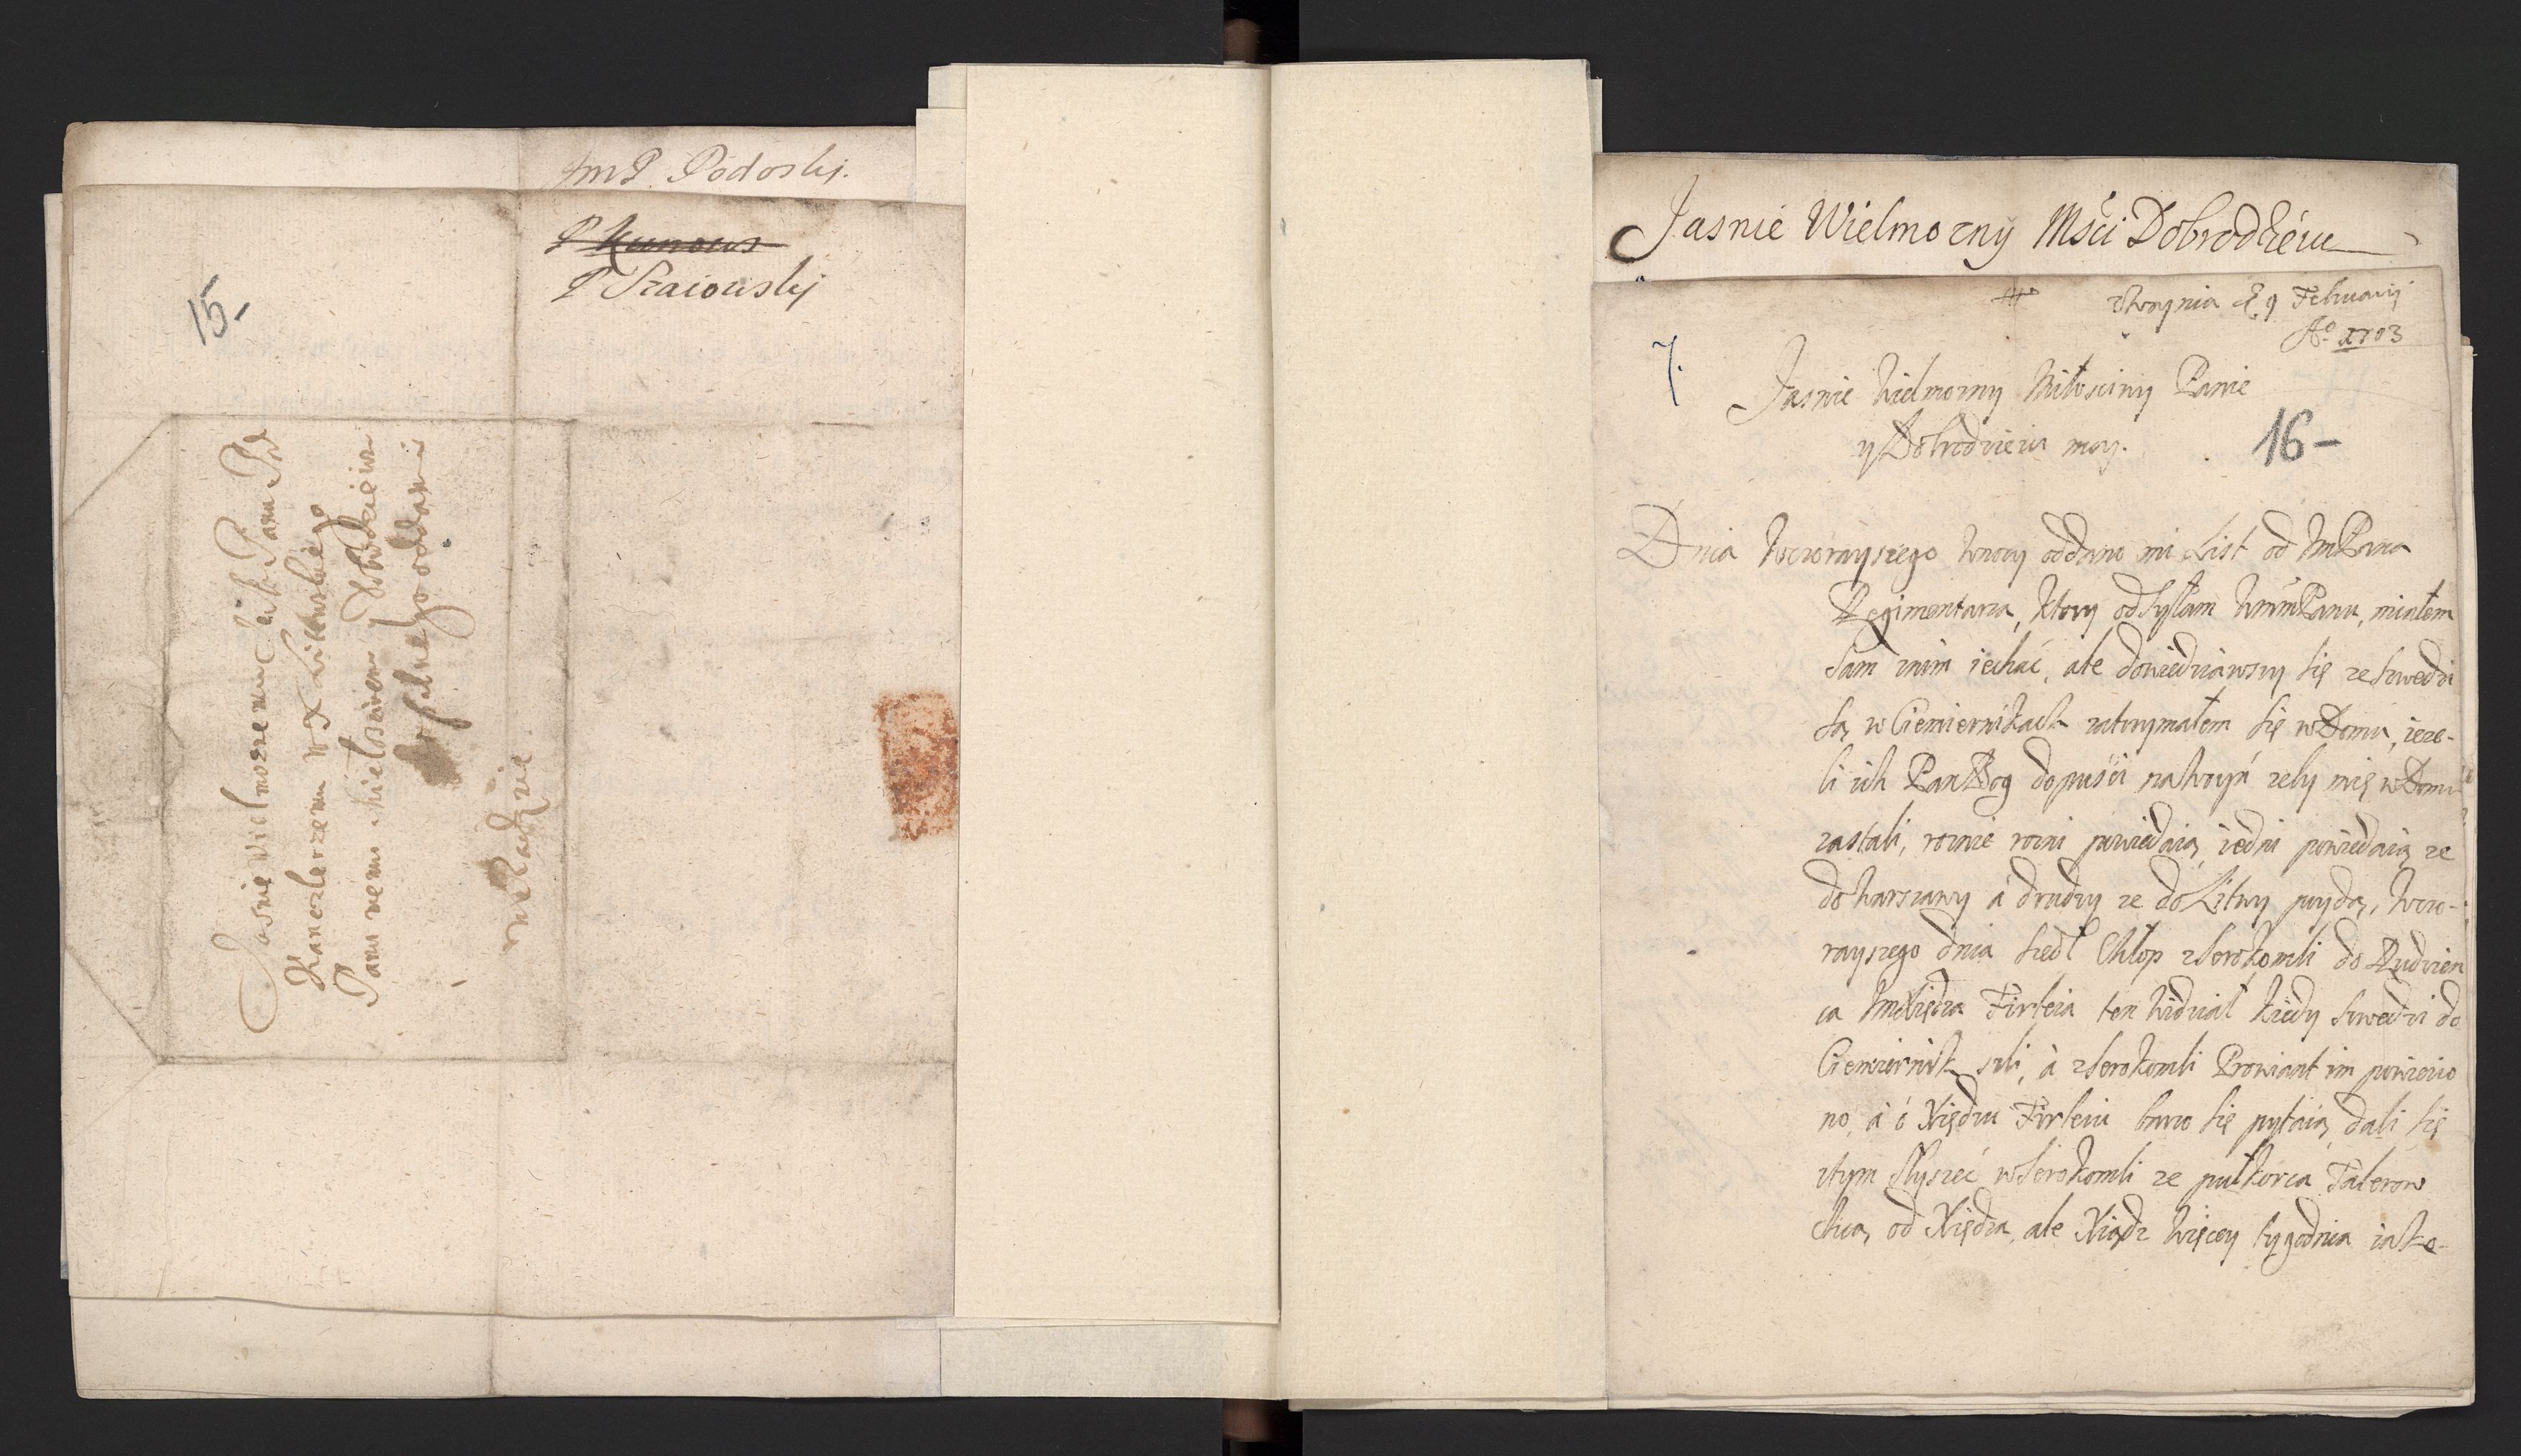 ImP. Podoski.
P Kunows
P Szaiowskij
15-
Jasnie Wielmozнemu Panu Pod
Kanclerzemu WX Litewskiego
Panu memu Mielosciwemu y Dobrodzieiowi
do pilnego oddani
w Radzie
Jasnie Wielmozny Mści Dobrodzieiu
9 Februarij
Aº 1703
7.
Jasnie Wielmozny Miłosciwy Panie
y Dobrodzieiu moy.
16-
Dnia Wczorayszego w nocy oddano mi List od ImPana
Regimentarza, ktory odsyłam WmMPanu, miałem
sam znim iechać, ale dowiedziawszy się ze Szwedzi
są w Ciemiernikach zatrzymałem się w Domu, ieze-
li ich Pan Bog dopuści na Woyń zeby mię w Domu
zastali, roznie rozni powiedaią, iedni powiedaią ze
do Warszawy á drudzy ze do Litwy poydą, Wczo-
rayszego dnia szedł Chłop z Serokomli do Rudzien
ca ImXiędza Firleia ten widział kiedy Szwedzi do
Ciemiernik szli, á z Serokomli Prowiant im powiezio
no, á o Xiędzu Firleiu barzo się pytaią, dali się
ztym słyszeć w Serokomli ze pułkorca Talerow
chcą od Xiędza, ale Xiądz więcey tygodnia iako-